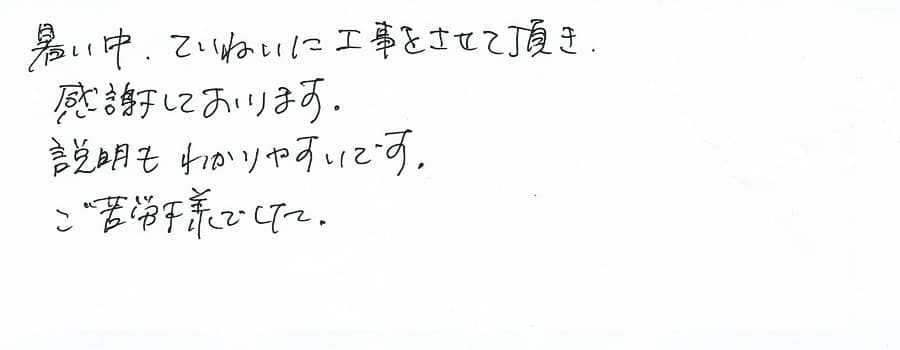 暑い中、ていねいに工事をさせて頂き、
感謝しております。
説明もわかりやすいです。
ご苦労様でした。